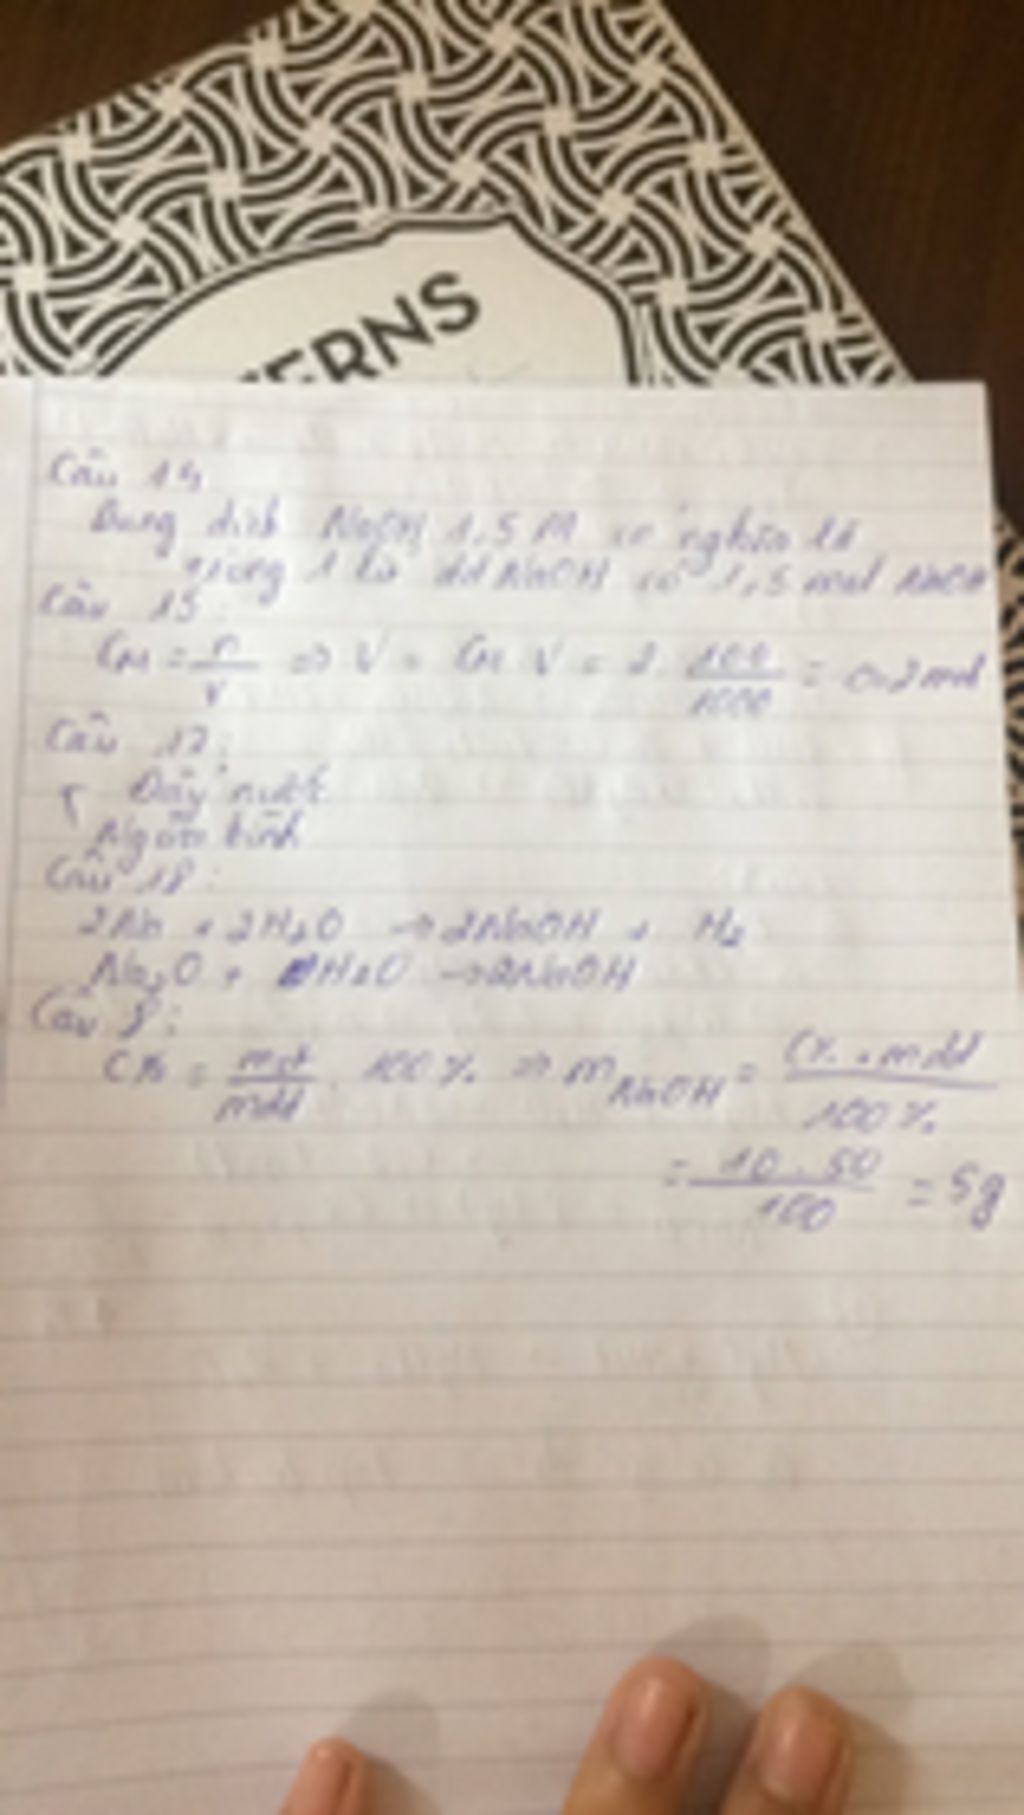 ERNS
Câu 14
Dung dịch NaOH 1,5 M có nghĩa là
trong 1 lít dd NaOH có 1,5 mol NaOH
Câu 15:
CM = n/V => V = CM V = 2. 100/1000 = 0.2 mol
Câu 17:
Đẩy nước
Ngửa bình
Câu 18:
2Na + 2H2O → 2NaOH + H2
Na2O + H2O → 2NaOH
Câu 8:
C% = mct/mdd . 100% => m NaOH = C%.mdd/100%
= 10.50/100 = 5g